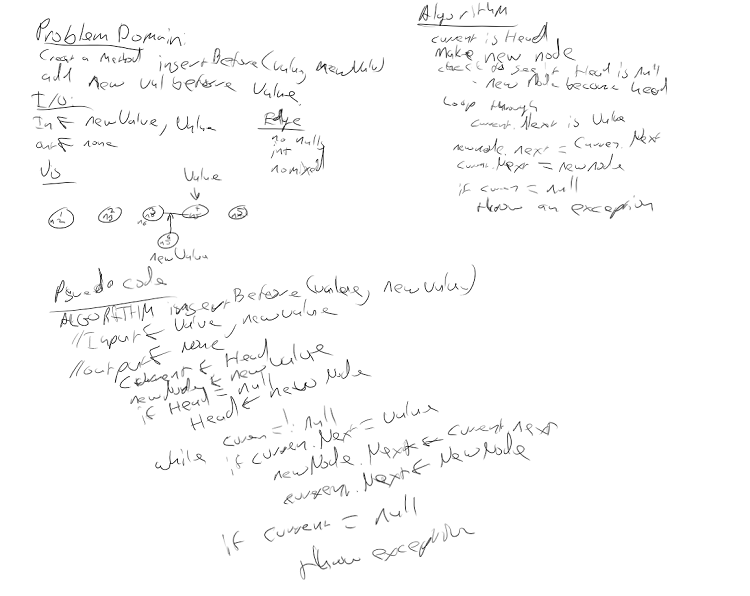 Problem Domain:
Creat a method insertBefore(value, newValue)
add new val before value.
I/O:
In ← newValue, Value
out ← none
Edge
no null
int
no mixed
Vis
Value
newValue
Algorithm
current is Head
Make new node
check to see if Head is null
- new Node become head
Loop through
current.Next is Value
newnode.next = Curren.Next
curren.Next = newnode
if curren = null
throw an exception
Pseudo code
ALGORITHM insertBefore(value, newvalue)
//Input ← Value, newvalue
//output ← none
Current ← Head
newNode ← new Value
if Head = null
Head ← new Node
while curren =! null
if curren.Next = value
newNode.Next ← current.next
current.Next ← NewNode
if current = null
throw exception